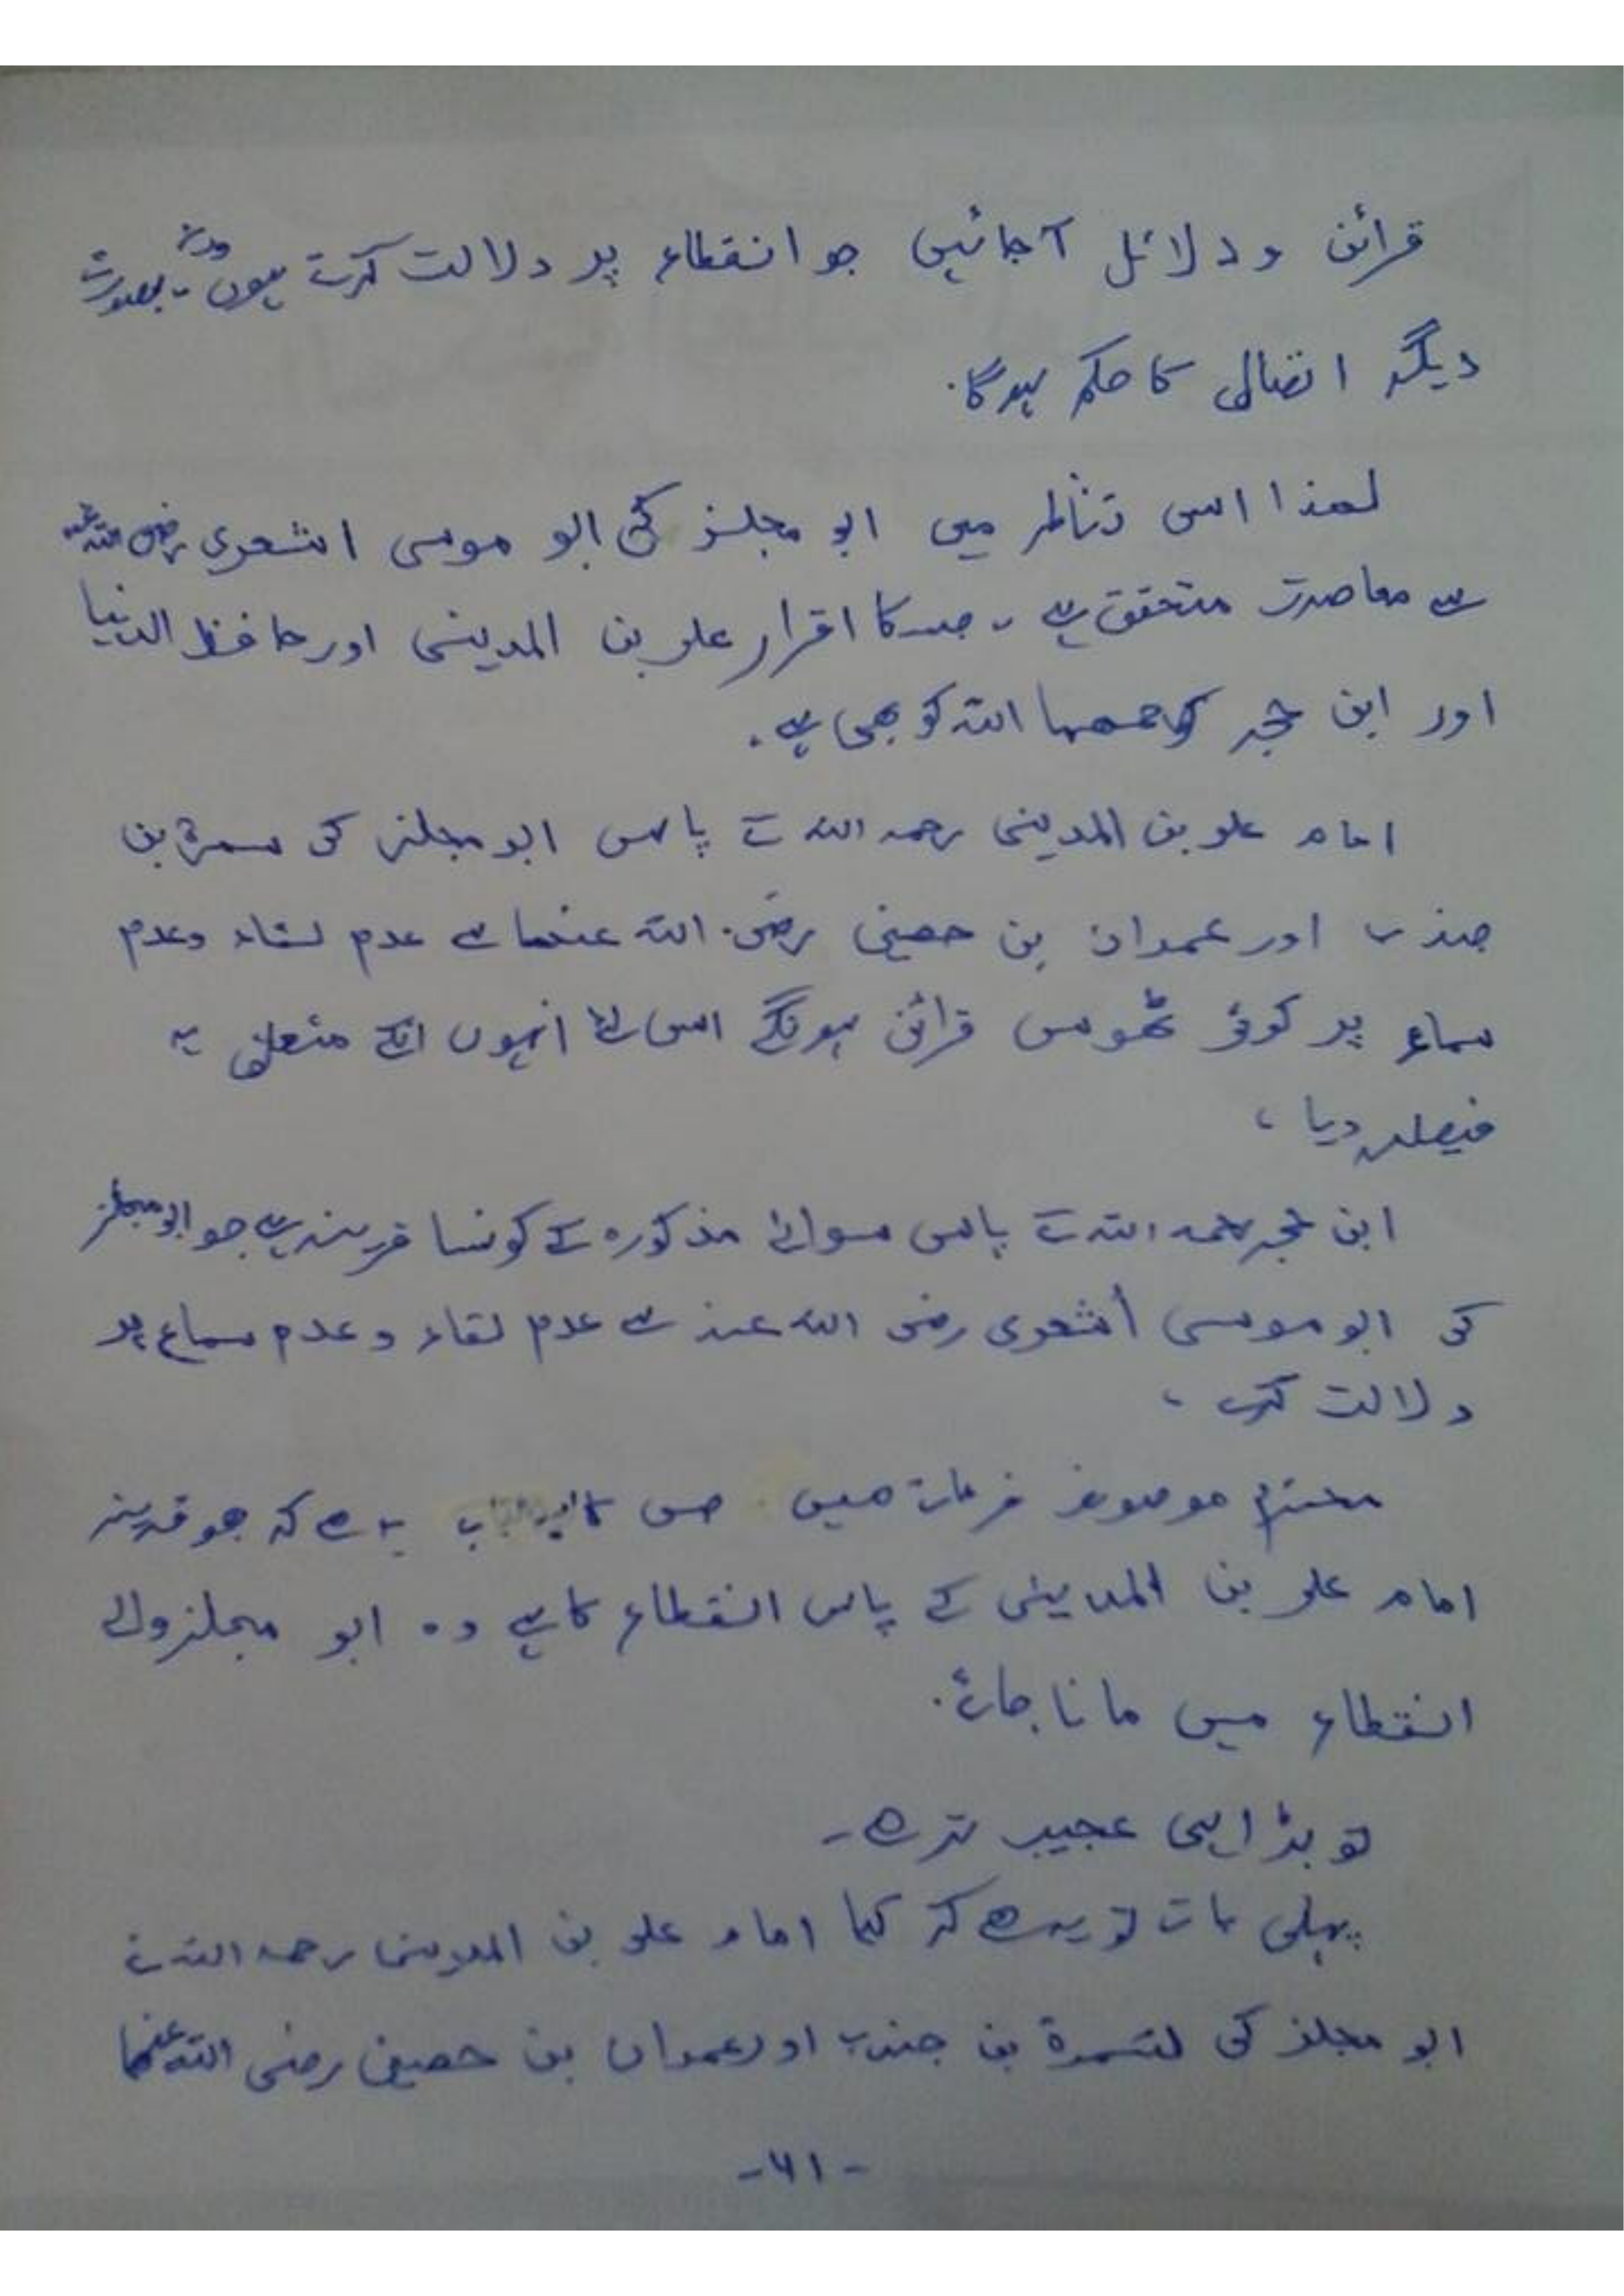 قرائن و دلائل آجائیں جو انقطاع پر دلالت کرتے ہوں ورنہ بصورت
دیگر اتصال کا حکم ہوگا.
لھذا اسی تناظر میں ابو مجلز کی ابو موسی اشعری رضی اللہ عنہ
سے معاصرت متحقق ہے ۔ جسکا اقرار علی بن المدینی اور حافظ الدنیا
اور ابن حجر رحمھما اللہ کو بھی ہے.
امام علی بن المدینی رحمہ اللہ کے پاس ابو مجلز کی سمرۃ بن
جندب اور عمران بن حصین رضی اللہ عنھما سے عدم لقاء وعدم
سماع پر کوئی ٹھوس قرائن ہونگے اسی لئے انہوں انکے متعلق یہ
فیصلہ دیا ،
ابن حجر رحمہ اللہ کے پاس سوائے مذکورہ کے کونسا قرینہ ہے جو ابو مجلز
کی ابو موسی أشعری رضی اللہ عنہ سے عدم لقاء و عدم سماع پر
دلالت کرے ،
محترم موصوف فرماتے ھیں جس کا یہ ھے کہ جو قرینہ
امام علی بن المدینی کے پاس انقطاع کا ہے وہ ابو مجلز والے
انقطاع میں مانا جائے.
تو بڑا ہی عجیب تر ھے ۔
پہلی بات تو یہ ھے کہ کیا امام علی بن المدینی رحمہ اللہ نے
ابو مجلز کی سمرۃ بن جندب اور عمران بن حصین رضی اللہ عنھما
-٦١-